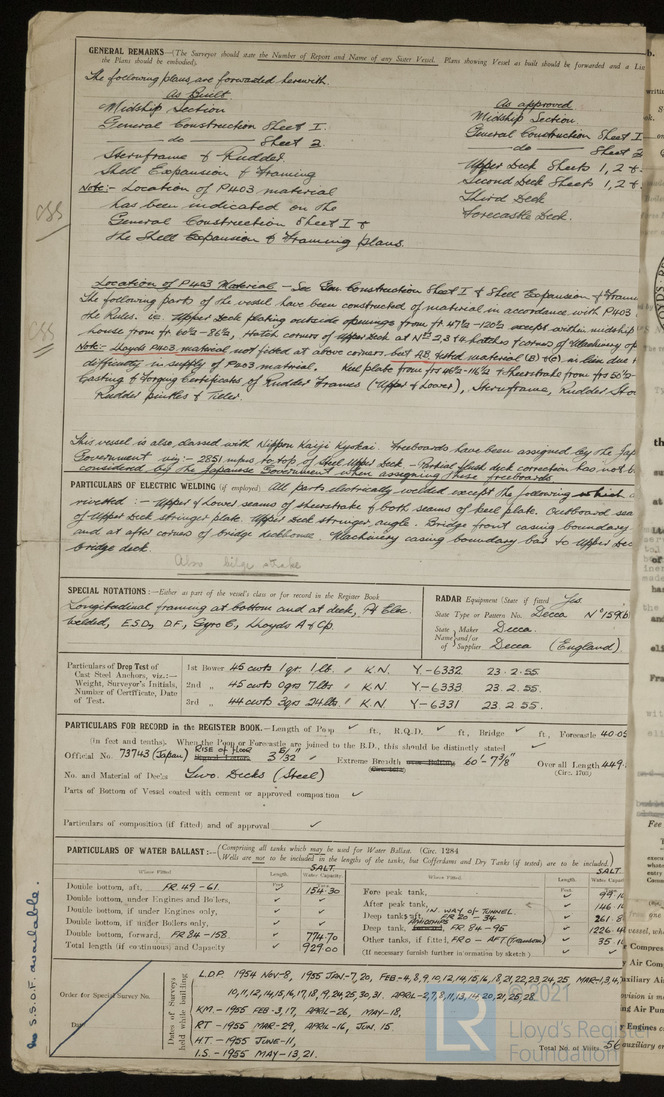 GENERAL REMARKS—(The Surveyor should state the Number of Report and Name of any Sister Vessel. Plans showing Vessel as built should be forwarded and a Lis
the Plans should be embodied).
The following plans are forwarded herewith.
As Built
Midship Section
General Construction Sheet I.
— do — Sheet 2.
Sternframe & Rudder
Shell Expansion & Framing
Note:- Location of P403 material
has been indicated on the
General Construction Sheet I &
the Shell Expansion & Framing plans.
As approved
Midship Section.
General Construction Sheet I
— do — Sheet 2
Upper Deck Sheets 1, 2 &
Second Deck Sheets 1, 2 &
Third Deck
Forecastle Deck.
Location of P403 Material – See Gen. Construction Sheet I & Shell Expansion & Framin
The following parts of the vessel have been constructed of material in accordance with P403
the Rules. i.e. Upper Deck plating outside openings from fr 47½-120½ except within midship
house from fr 60½-86½, Hatch corners of Upper Deck at Nos 2,3 & 4 hatches & corners of Machinery op
Note:- Lloyds P403 material not fitted at above corners but AB tested material (B) & (C) in lieu due t
difficulty in supply of P403 material. Keel plate from frs 46½-116½ & sheerstrake from frs 50½-
Casting & Forging Certificates of Rudder Frames (Upper & Lower), Sternframe, Rudder Sto
Rudder pintles & Tiller.
This vessel is also classed with Nippon Kaiji Kyokai. Freeboards have been assigned by the Jap
Government viz:- 2851 m/ms to top of Steel Upper Deck – Partial flush deck correction has not b
considered by the Japanese Government when assigning these freeboards
PARTICULARS OF ELECTRIC WELDING (if employed) All parts electrically welded except the following which a
rivetted :- Upper & Lower seams of sheerstrake & both seams of keel plate. Outboard sea
of Upper Deck stringer plate. Upper Deck stringer angle. Bridge front casing boundary
and at after corners of bridge deckhouse. Machinery casing boundary bar to Upper Dec
bridge deck.
Also bilge strake
SPECIAL NOTATIONS:—Either as part of the vessel's class or for record in the Register Book
Longitudinal framing at bottom and at deck, Pt Elec.
welded, E.S.D., D.F., Gyro C, Lloyds A & Cp.
RADAR Equipment (State if fitted) Yes.
State Type or Pattern No. Decca No 159(b
State Name and/or of Maker Decca.
Supplier Decca (England)
Particulars of Drop Test of
Cast Steel Anchors, viz.:—
Weight, Surveyor's Initials,
Number of Certificate, Date
of Test.
1st Bower 45 cwts 1 qr. 1 lb. " K.N. Y-6332 23.2.55.
2nd " 45 cwts 0 qrs 7 lbs " K.N Y-6333. 23.2.55.
3rd " 44 cwts 3 qrs 24 lbs. " K.N Y-6331 23.2.55.
PARTICULARS FOR RECORD in the REGISTER BOOK.—Length of Poop ✓ ft., R.Q.D. ✓ ft., Bridge ✓ ft., Forecastle 40.05
(in feet and tenths). When the Poop or Forecastle are joined to the B.D., this should be distinctly stated ✓
Official No. 73743 (Japan) RISE OF FLOOR 3 5/32" Extreme Breadth 60'- 7 3/8" Over all Length 449.
(Circ. 1703)
No. and Material of Decks Two Decks (Steel)
Parts of Bottom of Vessel coated with cement or approved composition ✓
Particulars of composition (if fitted) and of approval ✓
PARTICULARS OF WATER BALLAST:—(Comprising all tanks which may be used for Water Ballast. (Circ. 1284
Wells are not to be included in the lengths of the tanks, but Cofferdams and Dry Tanks (if tested) are to be included.)
Where Fitted. Length. SALT. Water Capacity
Double bottom, aft, FR. 49-61. ✓ 154.30
Double bottom, under Engines and Boilers, ✓ ✓
Double bottom, if under Engines only, ✓ ✓
Double bottom, if under Boilers only, ✓ ✓
Double bottom, forward, FR 84-158. ✓ 774.70
Total length (if continuous) and Capacity ✓ 929.00
Where Fitted. Length. SALT Water Capacity
Fore peak tank, ✓
After peak tank, ✓ 146.
Deep tank, aft, IN WAY OF TUNNEL FR 20-34 ✓ 261.8
Deep tank, FR. 84-95 ✓ 1226.
Other tanks, if fitted, FR 0 - AFT (Transom) ✓ 35.
(If necessary furnish further information by sketch) ✓
Order for Special Survey No.
Date
Dates of Surveys held while building
L.D.P. 1954 NOV-8, 1955 JAN-7,20, FEB-4,8,9,10,12,14,15,16,18,21,22,23,24,25 MAR-1,3,4,
10,11,12,14,15,16,17,18,19,24,25,30,31. APRIL-2,7,8,11,13,14,20,21,25,28
K.M. - 1955 FEB-3,17, APRIL-26, MAY-18,
R.T - 1955 MAR-29, APRIL-16, JUN. 15.
H.T. - 1955 JUNE-11,
I.S. - 1955 MAY-13,21.
Total No. of Visits 56
No S.S.O.F. available.
© 2021
LR
Lloyd's Register
Foundation